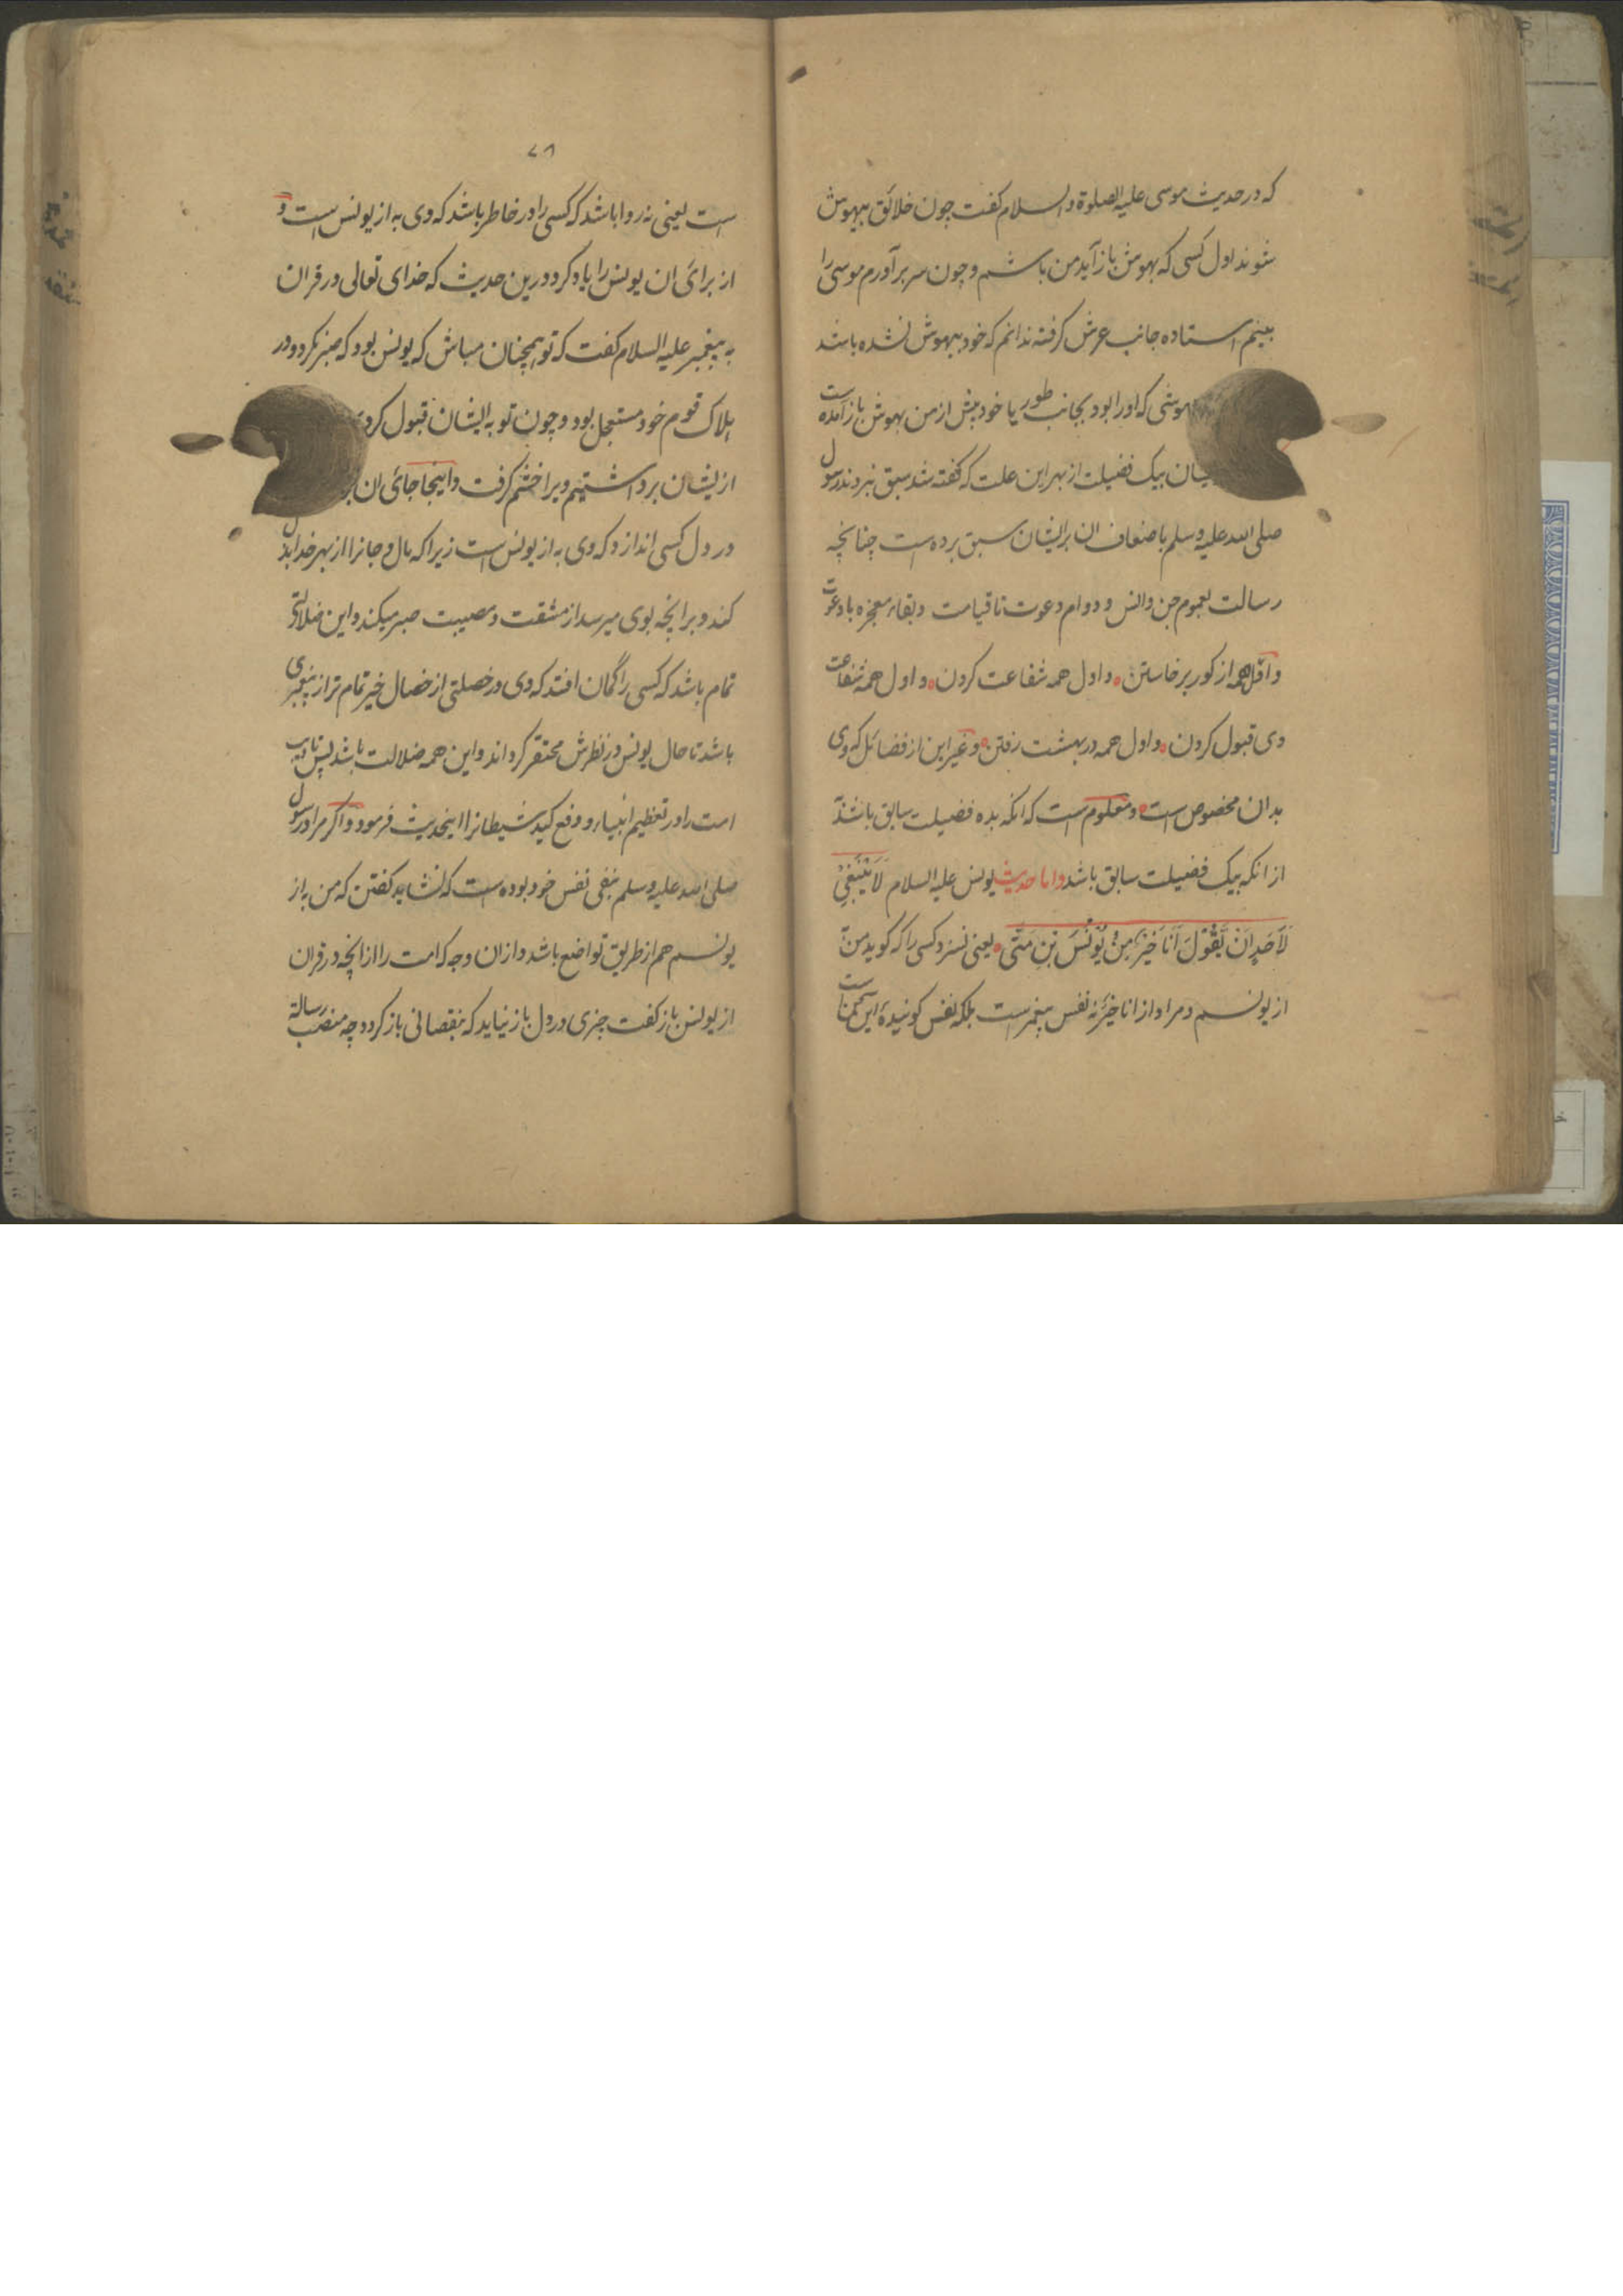 که در حدیث موسی علیه الصلوة والسلام کفت چون خلائق بیهوش
شوند اول کسی که بهوش باز آید من باشم و چون سر برآورم موسی را
بینم استاده جانب عرش کرفته ندانم که خود بیهوش نشده باشد
بهوشی که او را بود بجانب طور یا خود پیش از من بهوش باز آمده است
بیک فضیلت از بهر این علت که کفته شد سبق نبردند رسول
صلی الله علیه وسلم باضعاف ان برایشان سبق برده است چنانچه
رسالت بعموم جن وانس و دوام دعوت تا قیامت و بقاء معجزه با دعوت
و اول همه از کور برخاستن و اول همه شفاعت کردن و اول همه شفاعت
وی قبول کردن و اول همه در بهشت رفتن و غیر این از فضائل که وی
بدان مخصوص است و معلوم است که انکه بده فضیلت سابق باشد
از انکه بیک فضیلت سابق باشد و اما حدیث یونس علیه السلام لَا یَنْبَغِیْ
لِاَحَدٍ اَنْ یَّقُوْلَ اَنَا خَیْرٌ مِنْ یُوْنُسَ بْنِ مَتّٰی یعنی نسزد کسی را که کوید من به
از یونسم و مراد از انا خیر نه نفس پیغمبر است بلکه نفس کوینده این سخن است
۷۸
است یعنی نه روا باشد که کسی را در خاطر باشد که وی به از یونس است و
از برائ ان یونس را یاد کرد درین حدیث که خدای تعالی در قران
به پیغمبر علیه السلام کفت که تو همچنان مباش که یونس بود که صبر نکرد و در
هلاک قوم خود مستعجل بود و چون توبه ایشان قبول کرد
از ایشان برداشتیم ویرا خشم کرفت و اینجا جائ ان
در دل کسی اندازد که وی به از یونس است زیرا که مال و جانرا از بهر خدا بذل
کند و برانچه بوی میرسد از مشقت و مصیبت صبر میکند و این ضلالتی
تمام باشد که کسی را گمان افتد که وی در خصلتی از خصال خیر تمام تر از پیغمبری
باشد تا حال یونس در نظرش محتقر کرداند و این همه ضلالت باشد پس
امت را در تعظیم انبیاء و دفع کید شیطانرا اینحدیث فرمود و اکر مراد رسول
صلی الله علیه وسلم نفی نفس خود بوده است که نشاید کفتن که من به از
یونسم هم از طریق تواضع باشد و ازان وجه که امت را از انچه در قران
از یونس باز کفت چیزی در دل باز نیاید که بنقصانی باز کردد چه منصب رسالة